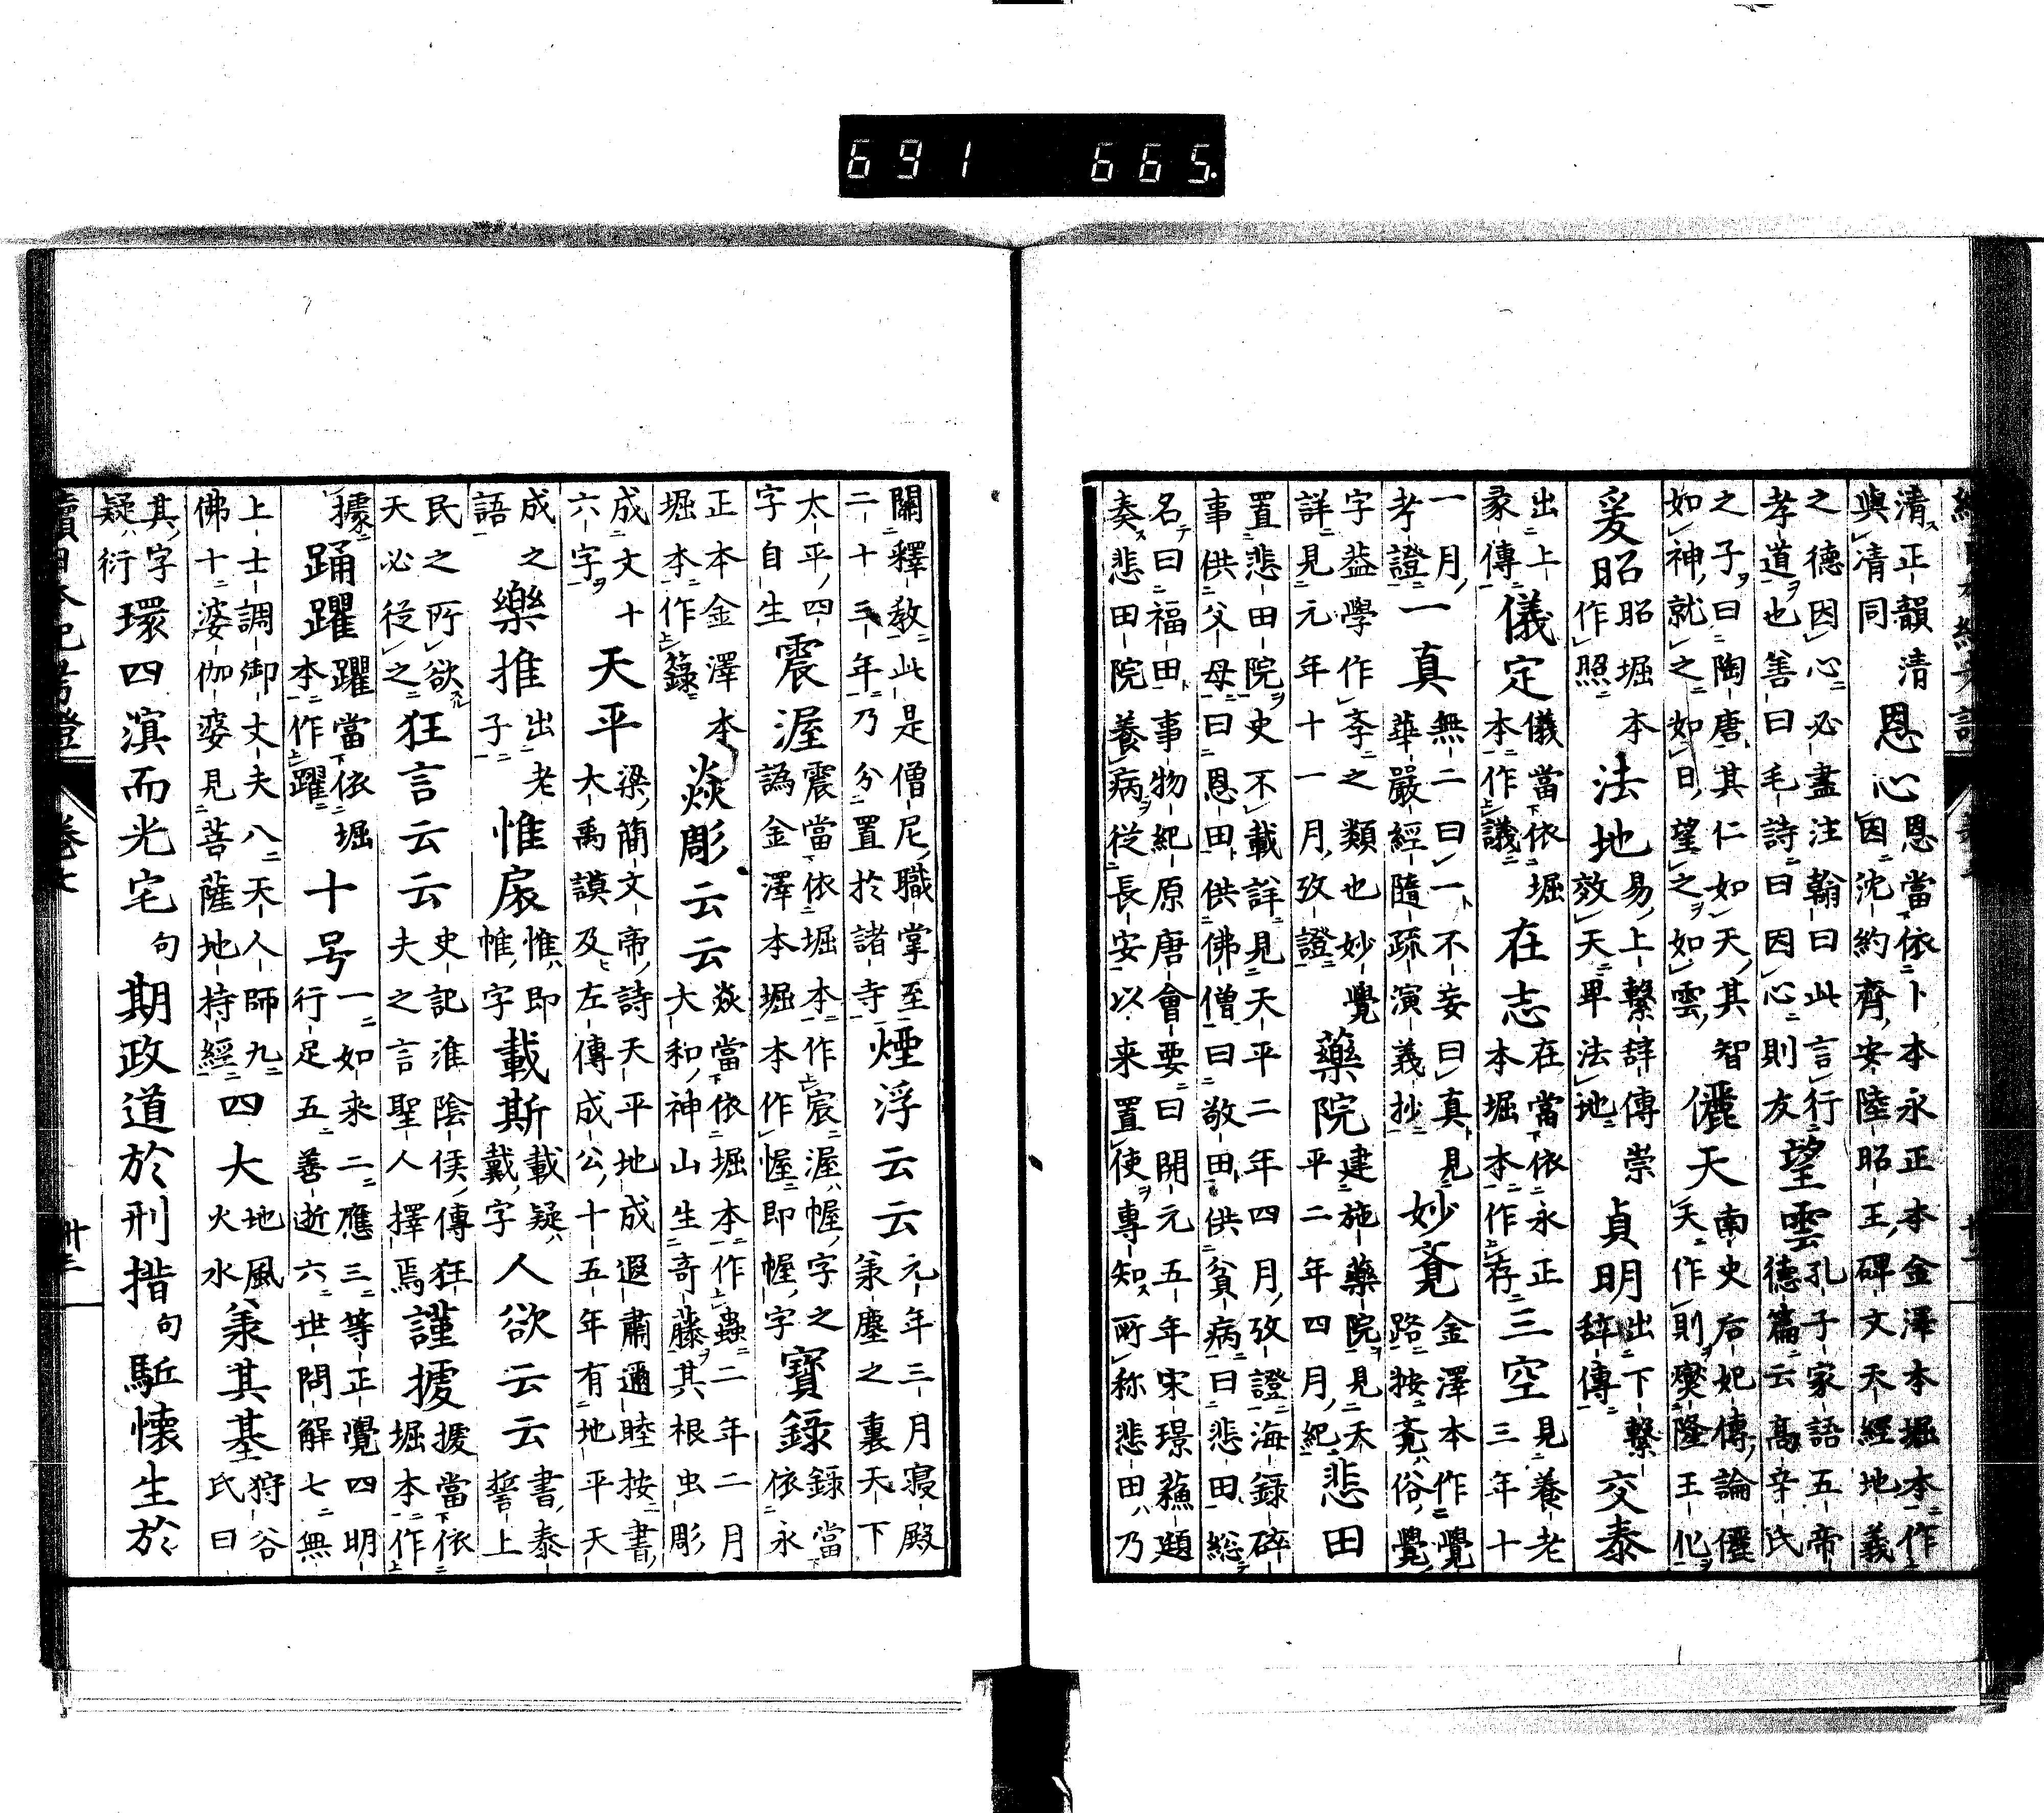 清正韻清
與清同
恩心
恩當依卜本永正本金澤本堀本作
因沈約齊安陸昭王碑文天經地義
之德因心必盡注翰曰此言行
孝道也善曰毛詩曰因心則友
望雲
孔子家語五帝
德篇云高辛氏
之子曰陶唐其仁如天其智
如神就之如日望之如雲
儷天
南史后妃傳論儷
天作則燮隆王化
爰昭
昭堀本
作照
法地
易上繫辭傳崇
效天卑法地
貞明
出下繫
辭傳
交泰
出上
彖傳
儀定
儀當依堀
本作議
在志
在當依永正
本堀本作存
三空
見養老
三年十
一月
考證
一真
無二曰一不妄曰真見
華嚴經隨疏演義抄
妙覔
金澤本作覺
路按覔俗覺
字益學作斈之類也妙覺
詳見元年十一月攷證
藥院
建施藥院見天
平二年四月紀
悲田
置悲田院史不載詳見天平二年四月攷證海録碎
事供父母曰恩田供佛僧曰敬田供貧病曰悲田総
名曰福田事物紀原唐會要曰開元五年宋璟蘓頲
奏悲田院養病從長安以来置使專知所称悲田乃
關釋教此是僧尼職掌至
二十三年乃分置於諸寺
煙浮云云
元年三月寝殿
兼塵之裏天下
太平四
字自生
震渥
震當依堀本作宸渥幄字之
譌金澤本堀本作幄即幄字
寳録
録當
依永
正本金澤本
堀本作籙
焱彫云云
焱當依堀本作蟲二年二月
大和神山生奇藤其根虫彫
成文十
六字
天平
梁簡文帝詩天平地成遐肅邇睦按書
大禹謨及左傳成公十五年有地平天
成之
語
樂推
出老
子
惟扆
惟即
帷字
載斯
載疑
戴字
人欲云云
書泰
誓上
民之所欲
天必從之
狂言云云
史記淮陰侯傳狂
夫之言聖人擇焉
謹擾
擾當依
堀本作
據
踊躍
躍當依堀
本作躍
十号
一如来二應三等正覺四明
行足五善逝六世問解七無
上士調御丈夫八天人師九
佛十婆伽婆見菩薩地持經
四大
地風
火水
兼其基
狩谷
氏曰
其字
疑衍
環四瀛而光宅句期政道於刑措句駈懐生於
續日本紀考證 卷七 卅三